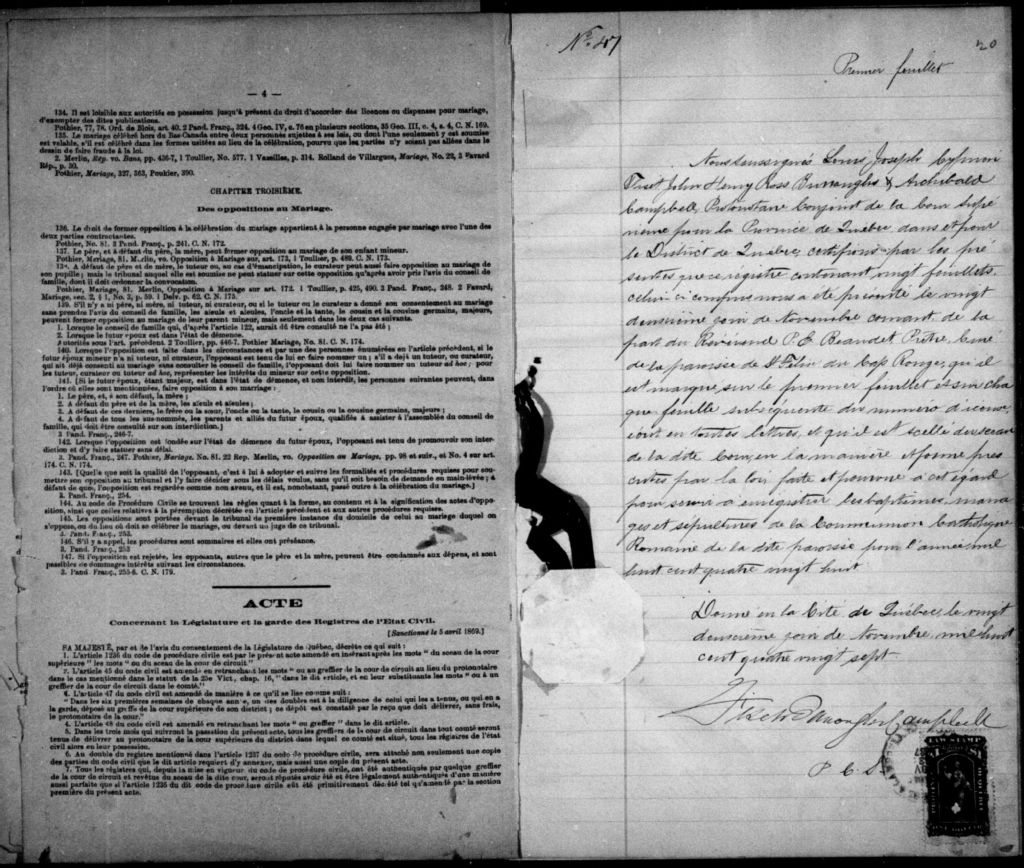 — 4 —
134. Il est loisible aux autorités en possession jusqu'à présent du droit d'accorder des licences ou dispenses pour mariage,
d'exempter des dites publications.
Pothier, 77, 78. Ord. de Blois, art 40. 2 Pand. Franç., 324. 4 Geo. IV, c. 76 en plusieurs sections, 35 Geo. III, c. 4, s. 4, C. N. 169.
135. Le mariage célébré hors du Bas-Canada entre deux personnes sujettes à ses lois, ou dont l'une seulement y est soumise
est valable, s'il est célébré dans les formes usitées au lieu de la célébration, pourvu que les parties n'y soient pas allées dans le
dessein de faire fraude à la loi.
2. Merlin, Rép. vo. Bans, pp. 436-7, 1 Toullier, No. 577. 1 Vazeilles, p. 314. Rolland de Villargues, Mariage, No. 22, 3 Favard
Rép., p. 30.
Pothier, Mariage, 327, 363, Poukier, 390.
CHAPITRE TROISIÈME.
Des oppositions au Mariage.
136. Le droit de former opposition à la célébration du mariage appartient à la personne engagée par mariage avec l'une des
deux parties contractantes.
Pothier, No. 81. 3 Pand. Franç., p. 241. C. N. 172.
137. Le père, et à défaut du père, la mère, peut former opposition au mariage de son enfant mineur.
Pothier, Mariage, 81, Merlin, vo. Opposition à Mariage sur, art. 173, 1 Toullier, p. 489. C. N. 173.
A défaut de père et de mère, le tuteur ou, au cas d'émancipation, le curateur peut aussi faire opposition au mariage de
son pupille; mais le tribunal auquel elle est soumise ne peut statuer sur cette opposition qu'après avoir pris l'avis du conseil de
famille, dont il doit ordonner la convocation.
Pothier, Mariage, 81. Merlin, Opposition à Mariage sur art. 172. 1 Toullier, p. 425, 490. 3 Pand. Franç., 248. 2 Favard,
Mariage, sec. 2, § 1, No. 3, p. 59. 1 Delv. p. 62. C. N. 175.
139. S'il n'y a ni père, ni mère, ni tuteur, ni curateur, ou si le tuteur ou le curateur a donné son consentement au mariage
sans prendre l'avis du conseil de famille, les aïeuls et aïeules, l'oncle et la tante, le cousin et la cousine germains, majeurs,
peuvent former opposition au mariage de leur parent mineur, mais seulement dans les deux cas suivants.
1. Lorsque le conseil de famille qui, d'après l'article 122, aurait dû être consulté ne l'a pas été;
2. Lorsque le futur époux est dans l'état de démence.
Autorités sous l'art. précédent. 2 Toullier, pp. 446-7. Pothier Mariage, No. 81. C. N. 174.
140. Lorsque l'opposition est faite dans les circonstances et par une des personnes énumérées en l'article précédent, si le
futur époux mineur n'a ni tuteur, ni curateur, l'opposant est tenu de lui en faire nommer un; s'il a déjà un tuteur, ou curateur,
qui ait déjà consenti au mariage sans consulter le conseil de famille, l'opposant doit lui faire nommer un tuteur ad hoc; pour
les tuteur, curateur ou tuteur ad hoc, représenter les intérêts du mineur sur cette opposition.
141. [Si le futur époux, étant majeur, est dans l'état de démence, et non interdit, les personnes suivantes peuvent, dans
l'ordre où elles sont mentionnées, faire opposition à son mariage:
1. Le père, et, à son défaut, la mère;
2. A défaut du père et de la mère, les aïeuls et aïeules;
3. A défaut de ces derniers, le frère ou la sœur, l'oncle ou la tante, le cousin ou la cousine germains, majeurs;
4. A défaut de tous les sus-nommés, les parents et alliés du futur époux, qualifiés à assister à l'assemblée du conseil de
famille, qui doit être consulté sur son interdiction.]
3 Pand. Franç., 246-7.
142. Lorsque l'opposition est fondée sur l'état de démence du futur époux, l'opposant est tenu de promouvoir son inter-
diction et d'y faire statuer sans délai.
3. Pand. Franç., 247. Pothier, Mariage. No. 81. 22 Rep. Merlin, vo. Opposition au Mariage, pp. 98 et suiv., et No. 4 sur art.
174. C. N. 174.
143. [Quelle que soit la qualité de l'opposant, c'est à lui à adopter et suivre les formalités et procédures requises pour sou-
mettre son opposition au tribunal et l'y faire décider sous les délais voulus, sans qu'il soit besoin de demande en main-levée; à
défaut de quoi, l'opposition est regardée comme non avenue, et il est, nonobstant, passé outre à la célébration du mariage.]
3. Pand. Franç., 254.
144. Au code de Procédure Civile se trouvent les règles quant à la forme, au contenu et à la signification des actes d'oppo-
sition, ainsi que celles relatives à la péremption décrétée en l'article précédent et aux autres procédures requises.
145. Les oppositions sont portées devant le tribunal de première instance du domicile de celui au mariage duquel on
s'oppose, ou du lieu où doit se célébrer le mariage, ou devant un juge de ce tribunal.
3. Pand. Franç., 253.
146. S'il y a appel, les procédures sont sommaires et elles ont préséance.
3. Pand. Franç., 253
147. Si l'opposition est rejetée, les opposants, autres que le père et la mère, peuvent être condamnés aux dépens, et sont
passibles de dommages intérêts suivant les circonstances.
3. Pand. Franç., 255-6. C. N. 179.
ACTE
Concernant la Législature et la garde des Registres de l'Etat Civil.
[Sanctionné le 5 avril 1869.]
SA MAJESTÉ, par et de l'avis du consentement de la Législature de Québec, décrète ce qui suit:
1. L'article 1236 du code de procédure civile est par le présent acte amendé en insérant après les mots "du sceau de la cour
supérieure" les mots "ou du sceau de la cour de circuit."
2. L'article 45 du code civil est amendé en retranchant les mots "ou au greffier de la cour de circuit au lieu du protonotaire
dans le cas mentionné dans le statut de la 25e Vict, chap. 16," dans le dit article, et en leur substituant les mots "ou à un
greffier de la cour de circuit dans le comté."
4. L'article 47 du code civil est amendé de manière à ce qu'il se lise comme suit:
"Dans les six premières semaines de chaque année, un des doubles est à la diligence de celui qui les a tenus, ou qui en a
la garde, déposé au greffe de la cour supérieure de son district; ce dépôt est constaté par le reçu que doit délivrer, sans frais,
le protonotaire de la cour."
4. L'article 48 du code civil est amendé en retranchant les mots "ou greffier" dans le dit article.
5. Dans les trois mois qui suivront la passation du présent acte, tous les greffiers de la cour de circuit dans tout comté seront
tenus de délivrer au protonotaire de la cour supérieure du district dans lequel ce comté est situé, tous les régistres de l'état
civil alors en leur possession.
6. Au double du registre mentionné dans l'article 1237 du code de procédure civile, sera attaché non seulement une copie
des parties du code civil que le dit article requiert d'y annexer, mais aussi une copie du présent acte.
7. Tous les régistres qui, depuis la mise en vigueur du code de procédure civile, ont été authentiqués par quelque greffier
de la cour de circuit et revêtus du sceau de la dite cour, seront réputés avoir été et être légalement authentiqués d'une manière
aussi parfaite que si l'article 1236 du dit code de procédure civile eût été primitivement décrété tel qu'amendé par la section
première du présent acte.
No. 47
20
Premier feuillet
Nous soussignés Louis Joseph Cyprien
Fiset, John Henry Ross Burroughs & Archibald
Campbell, Protonotaire Conjoint de la Cour Supé
rieure pour la Province de Québec dans et pour
le District de Québec, certifions par les pré
sentes que ce registre contenant vingt feuillets,
celui-ci compris nous a été présenté le vingt
deuxième jour de Novembre courant de la
part du Révérend P. E. Beaudet Prêtre Curé
de la paroisse de St Félix du Cap Rouge, qu'il
est marqué sur le premier feuillet et sur cha
que feuille subséquente du numéro d'iceux,
écrit en toutes lettres, et qu'il est scellé du sceau
de la dite Cour, en la manière et forme pres
crites par la loi, faite et pourvue à cet égard
pour servir à enregistrer les baptêmes, maria
ges et sépultures de la Communion Catholique
Romaine de la dite paroisse pour l'année mil
huit cent quatre vingt huit
Donné en la Cité de Québec, le vingt
deuxième jour de Novembre mil huit
cent quatre vingt sept.
Fiset Burroughs Campbell
P. C. S.
LAW STAMP